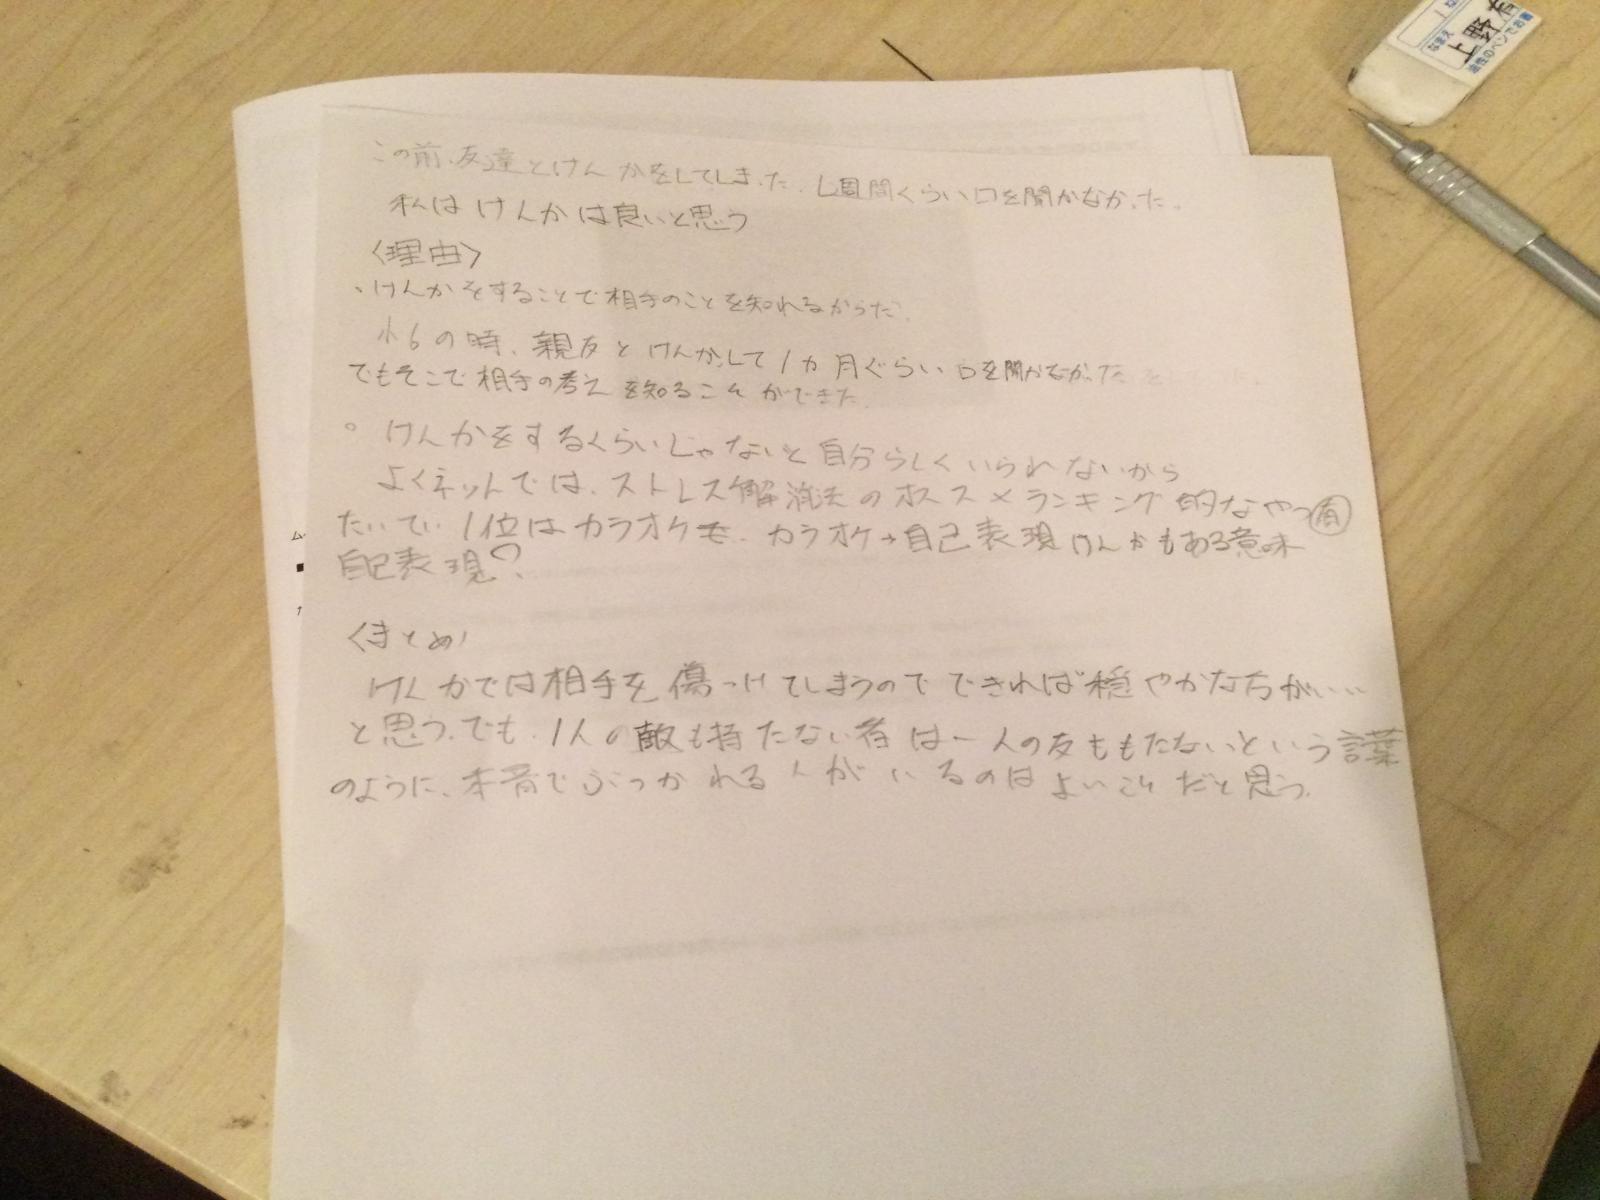 なまえ
上野有
油性のペンでお書
この前、友達とけんかをしてしまった。1週間くらい口を開かなかった。
私はけんかは良いと思う
〈理由〉
・けんかをすることで相手のことを知れるからだ。
小6の時、親友とけんかして1カ月ぐらい口を開かなかった
でもそこで相手の考えを知ることができた。
。けんかをするくらいじゃないと自分らしくいられないから
よくネットでは、ストレス解消法のオススメランキング的なやつ有
たいてい1位はカラオケも、カラオケ→自己表現けんかもある意味
自己表現?
〈まとめ〉
けんかでは相手を傷つけてしまうのでできれば穏やかな方がいい
と思う。でも、1人の敵も持たない者は一人の友ももたないという言葉
のように、本音でぶつかれる人がいるのはよいことだと思う。